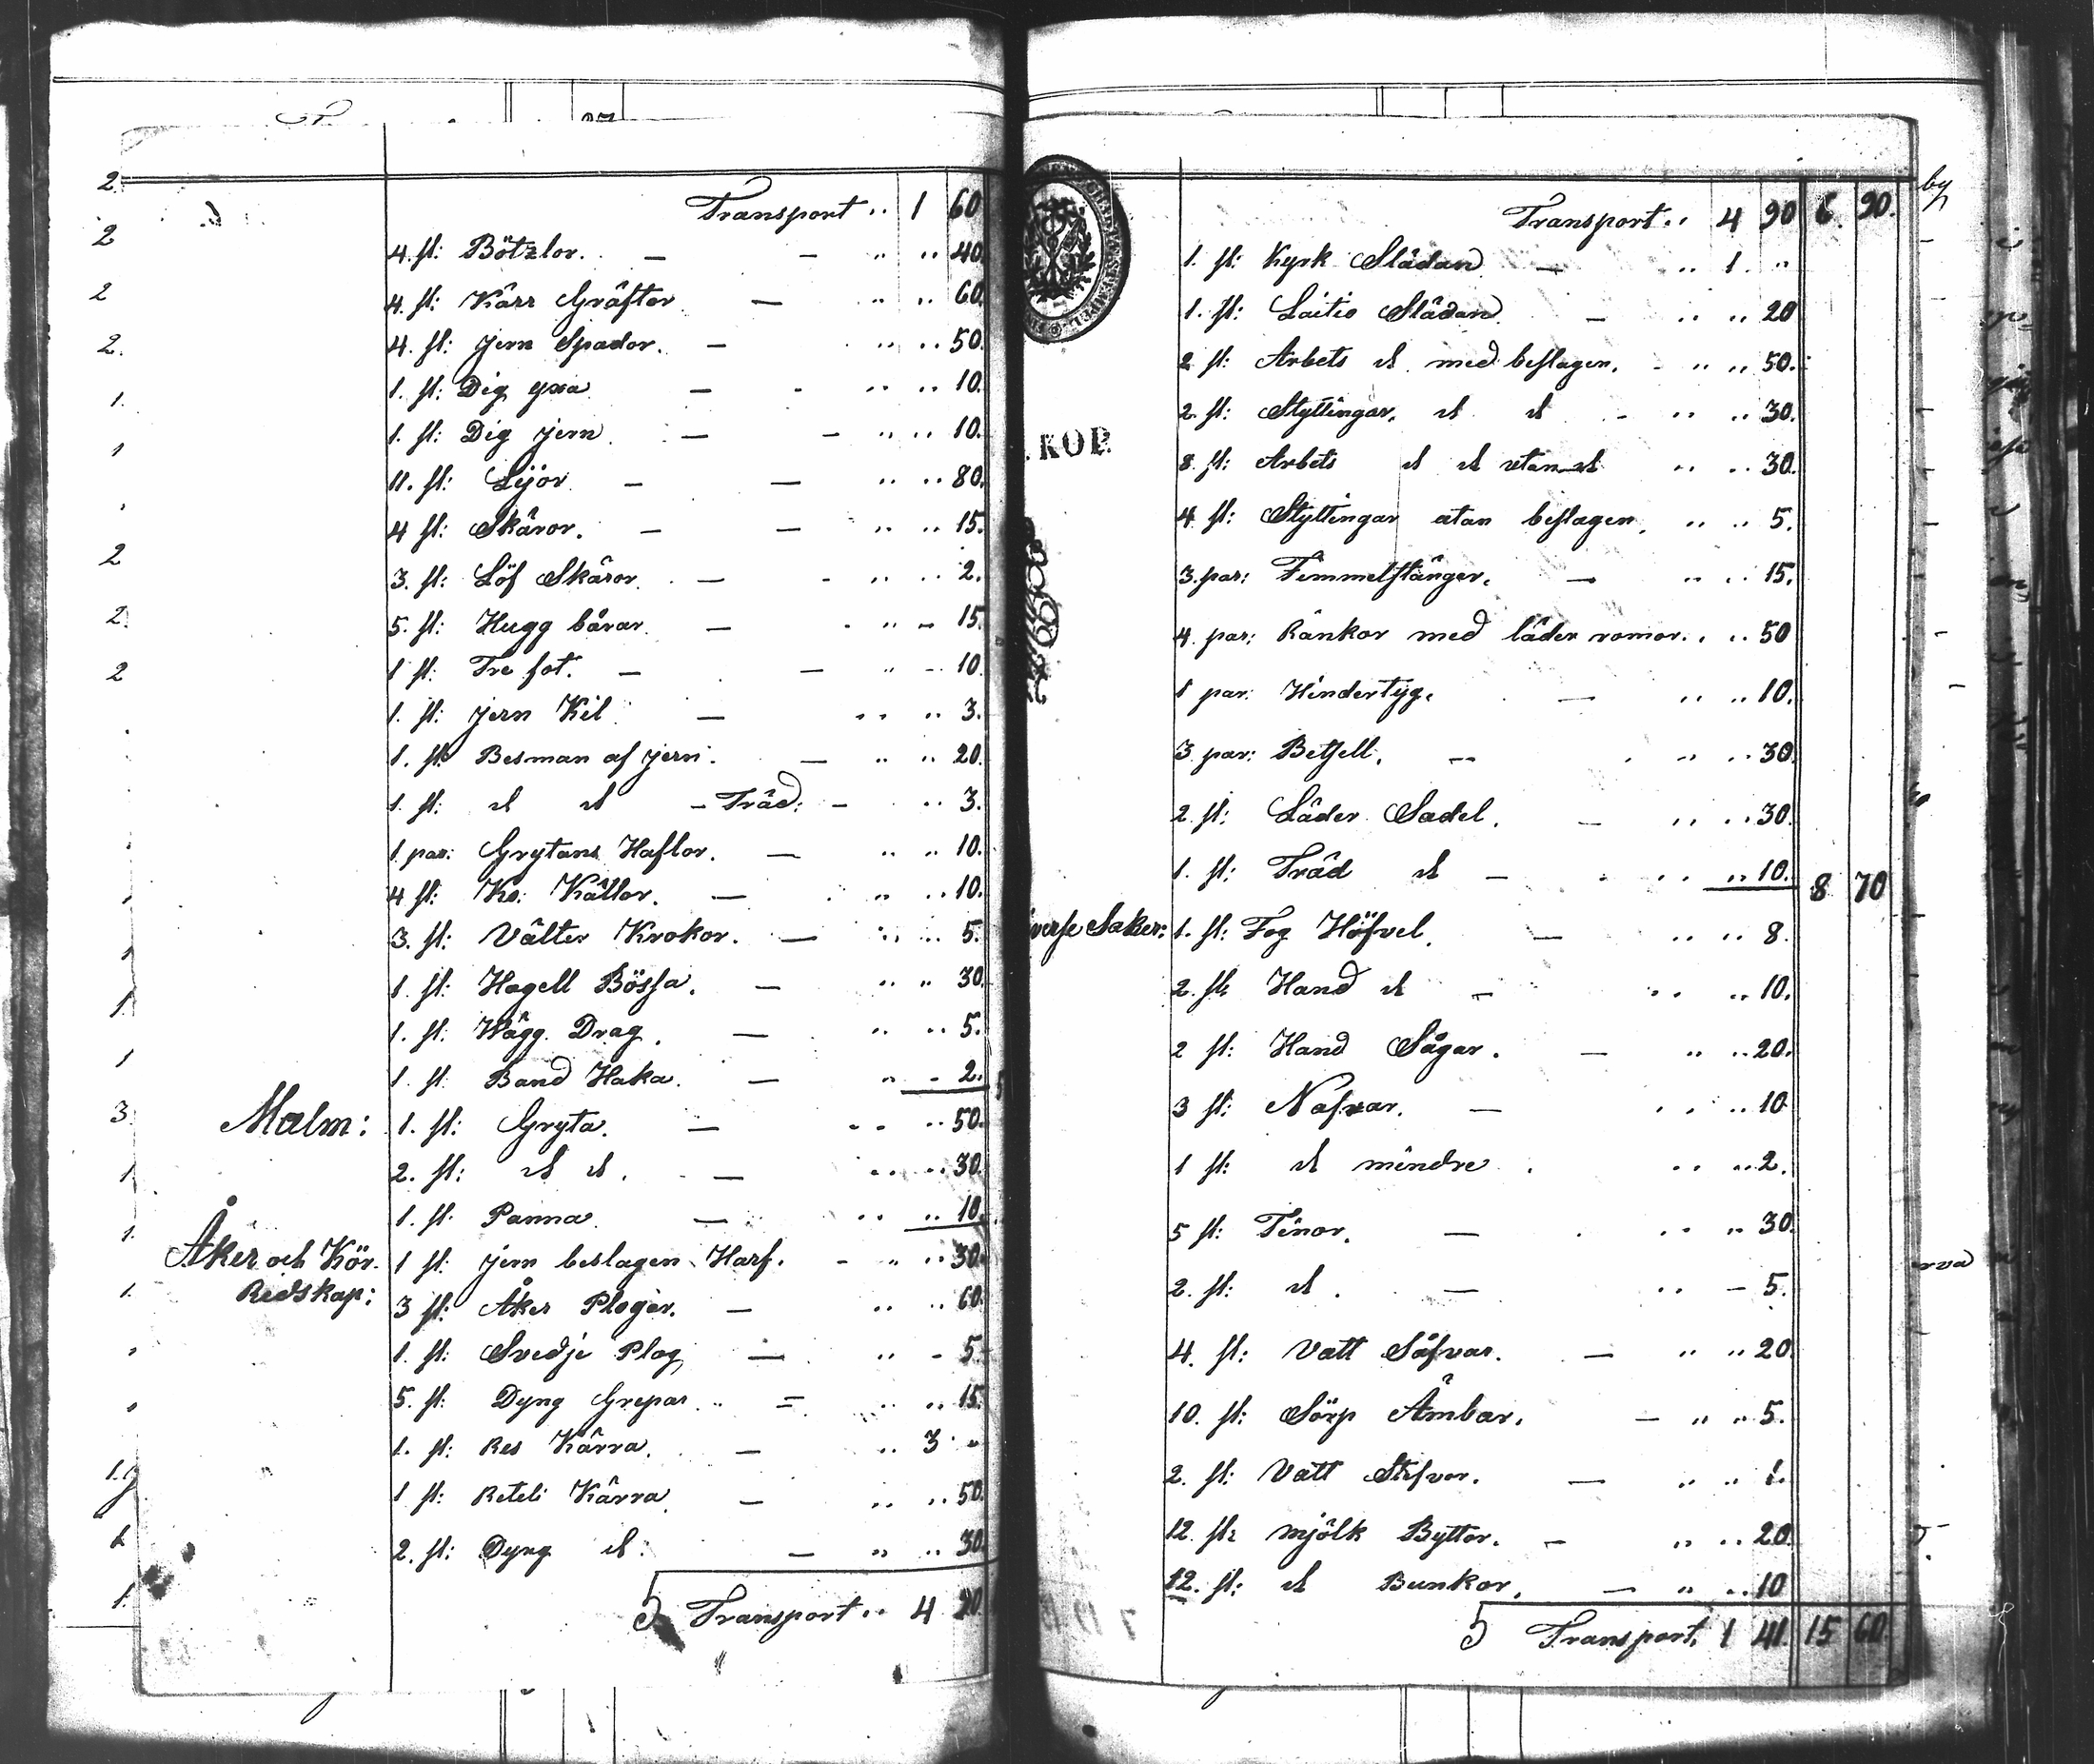 Transport .. 1 60
4. st: Bötzlor. — — .. .. 40.
4. st: Kärr Gräftor. — .. .. 60.
4. st: jern Spador. — .. .. 50.
1. st: Dig yxa — - .. .. 10.
1. st: Dig jern. — - .. .. 10.
11. st: Lijor — — .. .. 80.
4 st: Skäror. — — .. .. 15.
3. st: Löf Skäror. — - .. .. 2.
5. st: Hugg bårar. — - .. .. 15.
1 st: Tre fot. — — .. .. 10.
1. st: jern Kil — .. .. 3.
1. st: Besman af jern. — .. .. 20.
1. st: d d - Träd: - .. 3.
1 par: Grytans Haflor. — .. .. 10.
4 st: Ko: Kättor. — .. .. 10.
3. st: Välter Krokor. — .. .. 5.
1. st: Hagell Bössa. — .. .. 30.
1. st: Wägg Drag. — .. .. 5.
1. st: Band Haka. — .. - 2.
Malm: 1. st: Gryta. — .. .. 50.
2. st: d d. — .. .. 30.
1. st: Panna. — .. .. 10.
Åker och Kör- 1 st: jern beslagen Harf. - .. .. 30.
Redskap: 3 st: Åker Plogar. — .. .. 60.
1. st: Svedje Plog — .. - 5.
5. st: Dyng Grepar .. = .. .. 15.
1. st: Res Kärra. — .. 3 "
1 st: Reteli Kärra — .. .. 50.
2. st: Dyng d: — .. .. 30.
5 Transport .. 4 90.
Transport .. 4 90 6. 90.
1. st: Kyrk Slädan — .. 1. "
1. st: Laitio Slädan. — .. .. 20
2 st: Arbets d. med beslagen. - .. .. 50.
2. st: Styttingar. d d - .. .. 30.
8. st: Arbets d d utan d .. .. 30.
4 st: Styttingar utan beslagen. .. .. 5.
3. par: Fimmelstänger. — .. .. 15.
4. par: Rankor med läder romor. . .. 50
1 par: Hindertyg. — .. .. 10.
3 par: Betsell. — . .. .. 30.
2. st: Läder Sadel. — .. .. 30.
1. st: Träd d — . .. .. 10. 8 70
verse Saker: 1. st: Fog Höfvel. — .. .. 8.
2. st: Hand d — .. .. 10.
2 st: Hand Sågar. — .. .. 20.
3 st: Nafvar. — .. .. 10
1 st: d mindre . .. .. 2.
5 st: Tinor. — . .. .. 30.
2. st: d. — .. - 5.
4. st: Vatt Såfvar. — .. .. 20.
10. st: Sörp Ämbar. — .. .. 5.
2. st: Vatt Stefvor. — .. .. 1.
12. st: mjölk Byttor. — .. .. 20
12. st: d Bunkar. — .. .. 10
5 Transport. 1 41. 15 60.
KOP.